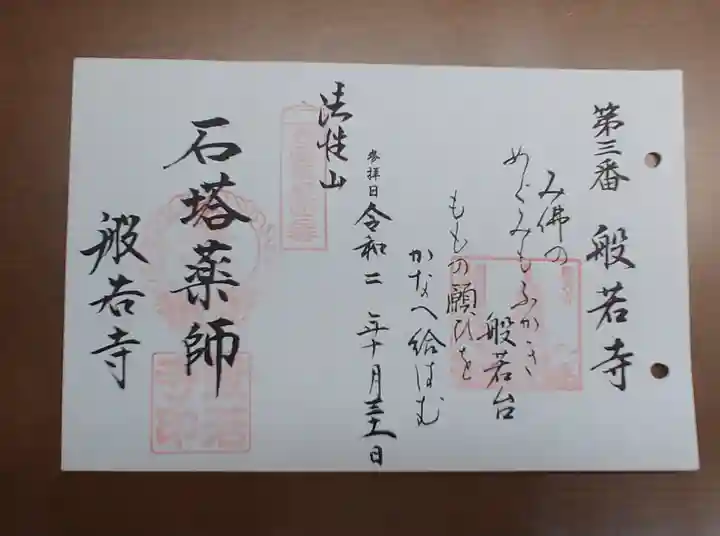 第三番 般若寺
み佛の
めぐみもふかき
般若台
ももの願ひを
かなへ給はむ
参拝日 令和二年十月三十一日
法性山
石塔薬師
般若寺